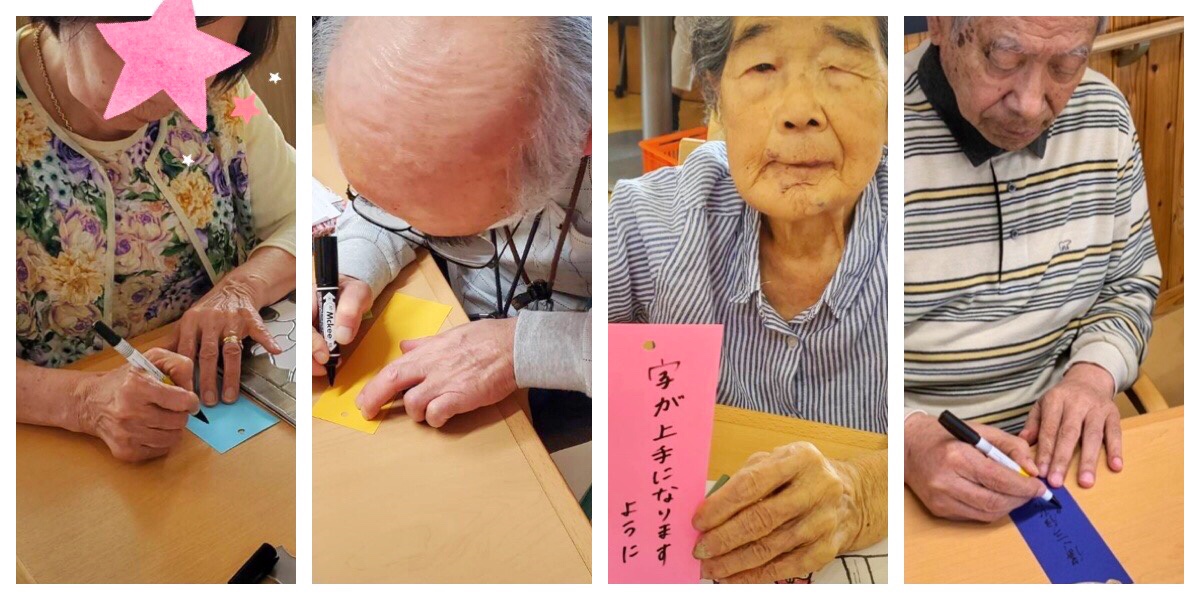 Mckee
字が上手になります
ように